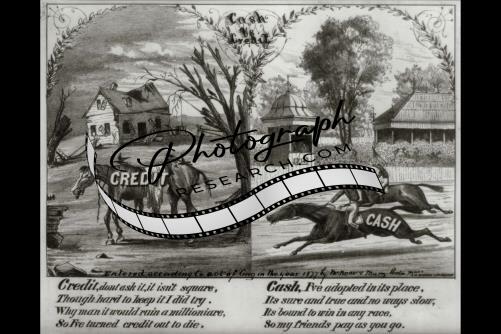 Cash
vs
Credit
Photograph
RESEARCH.COM
CREDIT
CASH
Entered according to act of Cong in the year 1877 by
Credit, dont ask it, it isn't square,
Though hard to keep it I did try.
Why man it would ruin a millionaire,
So I've turned credit out to die.
Cash, I've adopted in its place,
Its sure and true and no ways slow,
Its bound to win in any race,
So my friends pay as you go.